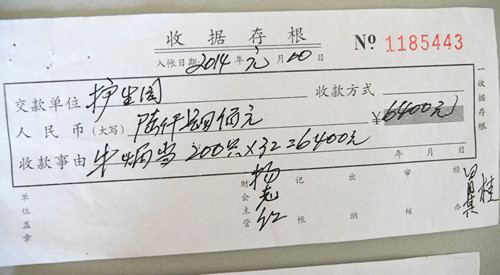 收据存根
№ 1185443
入帐日期：2014年元月10日
交款单位 护生园 收款方式
人民币（大写）陆仟肆佰元 ¥6400元
收款事由 牛 当 200只×32=6400元
年 月 日
收据存根
单位盖章
财会主管
记帐
出纳
审核
经办